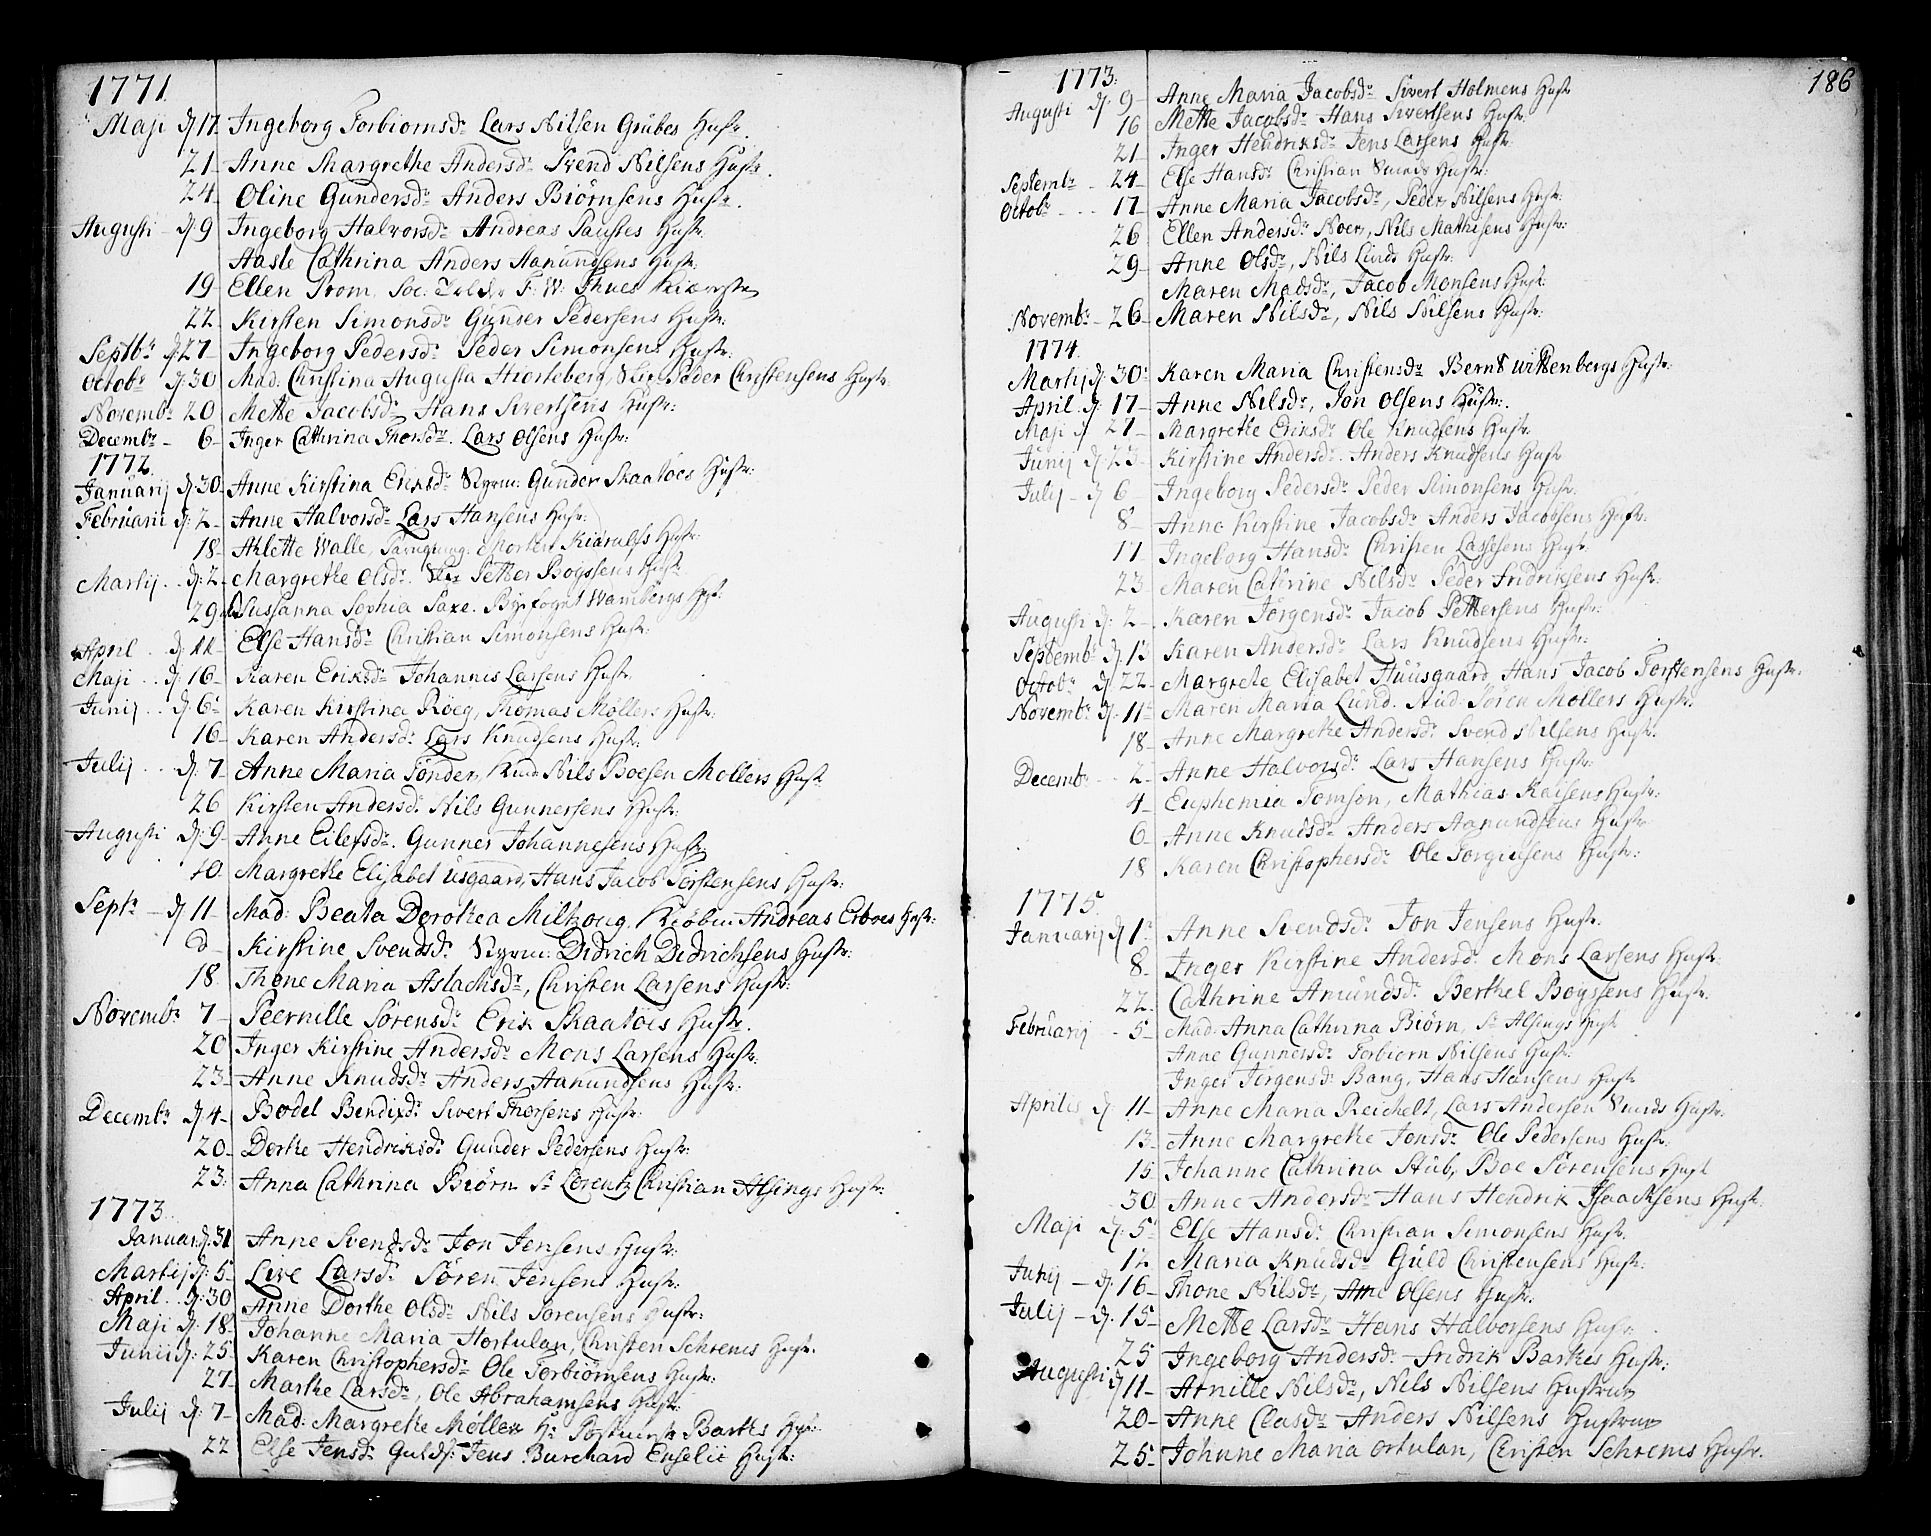 1771.
Maji d. 17. Ingeborg Torbiornsdr. Lars Nilsen Grubes Hustr.
21. Anne Margrethe Andersdr. Svend Nilsens Hustr.
24. Oline Gundersdr. Anders Biörnsens Hustr.
Augusti d. 9 Ingeborg Halvorsdr. Andreas Paustes Hustr.
Aasle Cathrina Anders Aanundsens Hustr.
19. Ellen Prom, F. W. Thues
22. Kirsten Simonsdr. Gunder Pedersens Hustr.
Septbr. d. 27. Ingeborg Pedersdr. Peder Simonsens Hustr.
Octobr. d. 30 Mad. Christina Augusta Hiorteberg, Peder Christensens Hustr.
Novembr. 20 Mette Jacobsdr. Hans Sivertsens Hustr.
Decembr. 6. Inger Cathrina Thorsdr. Lars Olsens Hustr.
1772.
Januarij d. 30. Anne Kirstina Eriksdr. Styrm. Gunder Skaatöes Hustr.
Februarii d. 2. Anne Halvorsdr. Lars Hansens Hustr.
18. Ahlette Walle, Morten Kidrulfs Hustr.
Martij d. 2. Margrethe Olsdr. Petter Boyssens Hustr.
29. Susanna Sophia Saxe. Byefogut Wambergs Hustr.
April d. 11. Else Hansdr. Christian Simonsens Hustr.
Maji d. 16. Karen Eriksdr. Johannes Larsens Hustr.
Junij d. 6. Karen Kirstina Röeg, Thomas Möllers Hustr.
16. Karen Andersdr. Lars Knudsens Hustr.
Julij d. 7. Anne Maria Tönder, Nils Boesen Mollers Hustr.
26 Kirsten Andersdr. Nils Gunnersens Hustr.
Augusti d. 9. Anne Eilefsdr. Gunner Johannesens Hustr.
10. Margrethe Elisabet Usgaard, Hans Jacob Torstensens Hustr.
Septr. d. 11. Mad. Beata Dorothea Miltzoug, Andreas Erboes Hustr.
d. Kirstine Svendsdr. Styrm. Didrich Didrichsens Hustr.
18. Thone Maria Aslachsdr., Christen Larsens Hustr.
Novembr. 7. Peernille Sörensdr. Erik Skaatöes Hustr.
20 Inger Kirstine Andersdr. Mons Larsens Hustr.
23. Anne Knudsdr. Anders Aanundsens Hustr.
Decembr. d. 4. Bodel Bendixdr. Sivert Thorsens Hustr.
20. Dorthe Hendriksdr. Gunder Pedersens Hustr.
23. Anna Cathrina Biörn Sr. Lorentz Christian Alsings Hustr.
1773.
Januar. d. 31 Anne Svendsdr. Jon Jensens Hustr.
Martij d. 5. Live Larsdr. Sören Jensens Hustr.
April d. 30 Anne Dorthe Olsdr. Nils Sorensens Hustr.
Maji d. 18. Johanne Maria Hortulan, Christen Schrems Hustr.
Junii d. 25 Karen Christophersdr. Ole Torbiörnsens Hustr.
27. Marthe Larsdr., Ole Abrahamsens Hustr.
Julij d. 7. Mad. Margrethe Moller Hr. Barthes Hustr.
22 Else Jensdr. Guldsm. Jens Burchard Enselii Hustr.

186
1773.
Augusti d. 9. Anne Maria Jacobsdr. Sivert Holmens Hustr.
16 Mette Jacobsdr. Hans Sivertsens Hustr.
21. Inger Hendriksdr. Jens Larsens Hustr.
Septembr. 24. Else Hansdr. Christian Smeds Hustr.
Octobr. 17. Anne Maria Jacobsdr., Peder Nilsens Hustr.
26 Ellen Andersdr. Noer, Nils Mathisens Hustr.
29. Anne Olsdr., Nils Linds Hustr.
Maren Madsdr., Jacob Monsens Hustr.
Novembr. 26. Maren Nilsdr., Nils Nilsens Hustr.
1774.
Martij d. 30. Karen Maria Christensdr. Bernt Wittenbergs Hustr.
April d. 17. Anne Nilsdr., Jon Olsens Hustr.
Maji d. 27. Margrethe Eriksdr. Ole Knudsens Hustr.
Junij d. 23. Kirstine Andersdr. Anders Knudsens Hustr.
Julij d. 6. Ingeborg Pedersdr. Peder Simonsens Hustr.
8. Anne Kirstine Jacobsdr. Anders Jacobsens Hustr.
17 Ingeborg Hansdr. Christen Lassesens Hustr.
23 Maren Cathrine Nilsdr. Peder Fridriksens Hustr.
Augusti d. 2. Karen Jörgensdr. Jacob Pettersens Hustr.
Septembr. d. 13 Karen Andersdr. Lars Knudsens Hustr.
Octobr. d. 22. Margrethe Elisabet Huusgaard, Hans Jacob Torstensens Hustr.
Novembr. d. 11. Maren Maria Lund. Sören Mollers Hustr.
18. Anne Margrethe Andersdr. Svend Nilsens Hustr.
Decembr. 2. Anne Halvorsdr. Lars Hansens Hustr.
4. Euphemia Tomson, Mathias Kaisens Hustr.
6. Anne Knudsdr. Anders Aanundsens Hustr.
18 Karen Christophersdr. Ole Torgiusens Hustr.
1775.
Januarij d. 1. Anne Svendsdr. Jon Jensens Hustr.
8. Inger Kirstine Andersd. Mons Larsens Hustr.
22. Cathrine Amundsd. Berthel Boyssens Hustr.
Februarij 5. Mad. Anna Cathrina Biörn, Sr. Alsings Hustr.
Anne Gunnersdr. Torbiorn Nilsens Hustr.
Inger Jörgensdr. Bang, Hans Hansens Hustr.
Aprilis d. 11. Anne Maria Reichelt, Lars Andersen Smeds Hustr.
13. Anne Margrethe Jonsdr. Ole Pedersens Hustr.
15 Johanne Cathrina Stub, Boe Sörensens Hustr.
30 Anne Andersdr. Hans Hendrik Isaachsens Hustr.
Maji d. 5. Else Hansdr. Christian Simonsens Hustr.
12 Maria Knudsdr. Guld Christensens Hustr.
Junij d. 16. Thone Nilsdr., Arne Olsens Hustr.
Julij d. 15. Mette Larsdr. Hans Halvorsens Hustr.
25 Ingeborg Andersdr. Fridrik Barthes Hustr.
Augusti d. 11. Arnille Nilsdr., Nils Nilsens Hustrue
20. Anne Clasdr. Anders Nilsens Hustrue
25. Johanne Maria Ortulan, Christen Schrems Hustr.